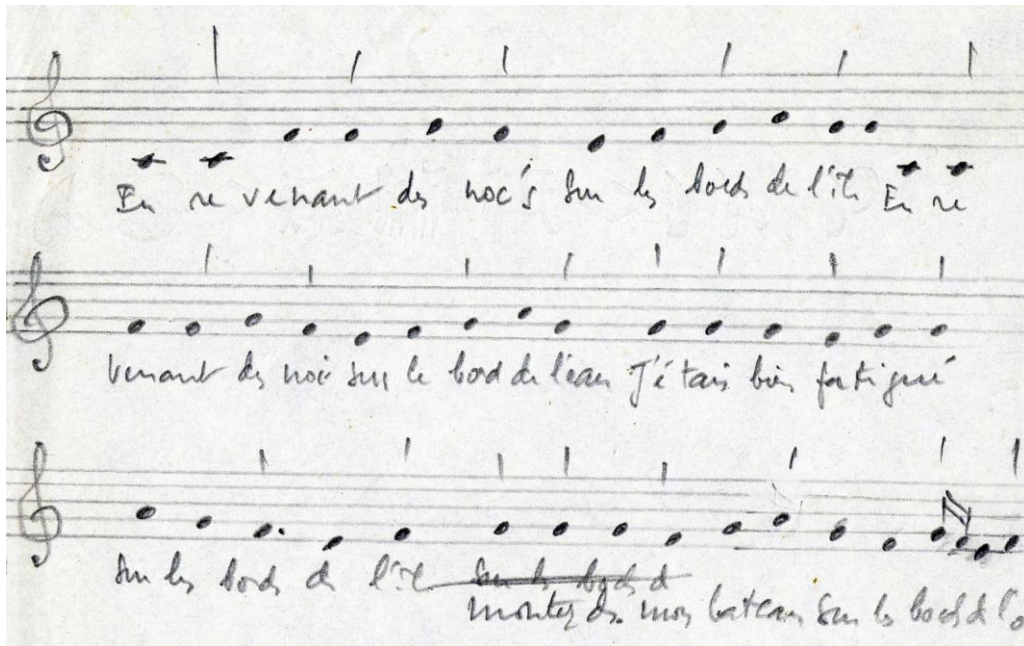 En revenant des noc's sur les bords de l'île En re
venant des noc's sur le bord de l'eau J'étais bien fatigué
sur les bords de l'île sur les bords d
montez ds mon bateau sur le bord de l'